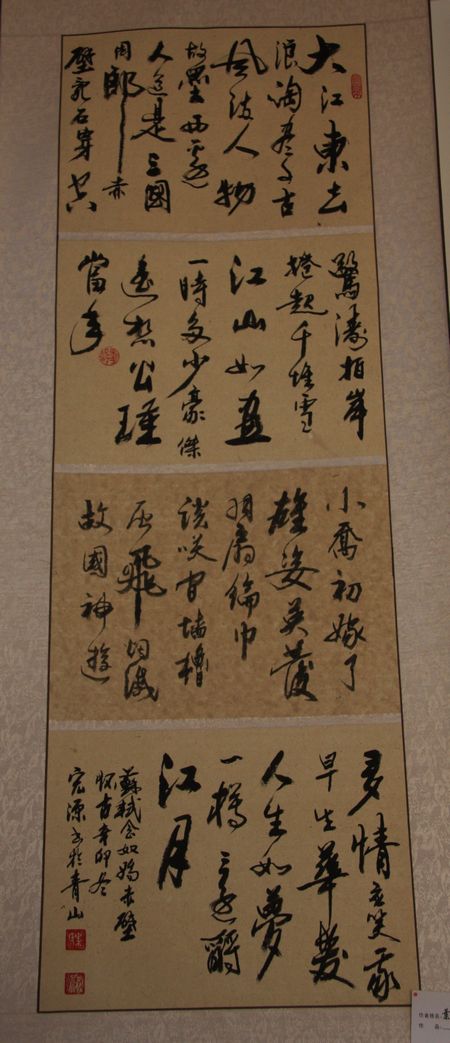 大江東去
浪淘盡千古
風流人物
故壘西邊
人道是三國
周郎赤
壁亂石穿空
驚濤拍岸
捲起千堆雪
江山如畫
一時多少豪傑
遙想公瑾
當年
小喬初嫁了
雄姿英發
羽扇綸巾
談咲间墙櫓
灰飛烟滅
故國神遊
多情應笑我
早生華髮
人生如夢
一樽還酹
江月
蘇軾念奴嬌赤壁
懷古辛卯冬
宏源書於青山
作者姓名:
作 品: